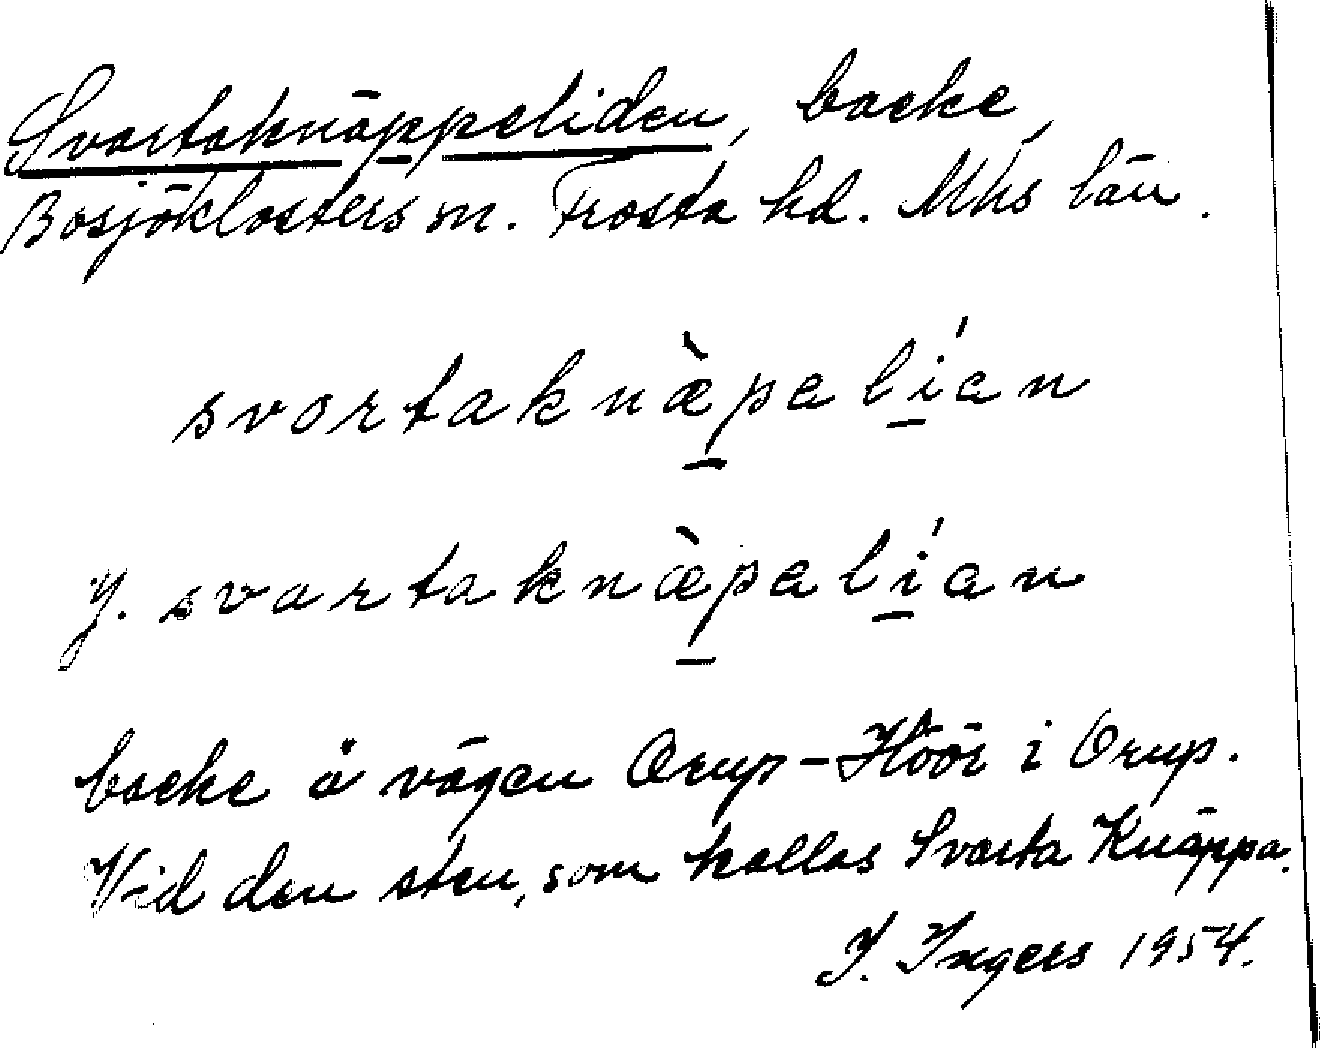 Svartaknäppeliden, backe,
Bosjöklosters sn. Frosta hd. Mhs län.
svortaknæ̀pelían
y. svartaknæ̀pelían
backe å vägen Orup-Höör i Orup.
Vid den sten, som kallas Svarta Knäppa.
I. Ingers 1954.